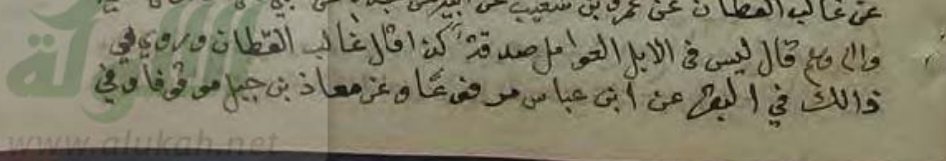 عن غالب القطان عن عمرو بن شعيب عن ابيه عن
قال ليس في الابل العوامل صدقة كذا قال غالب القطان وروي في
ذالك في البقر عن ابن عباس مرفوعا وعن معاذ بن جبل موقوفا وفي
الألوكة
www.alukah.net